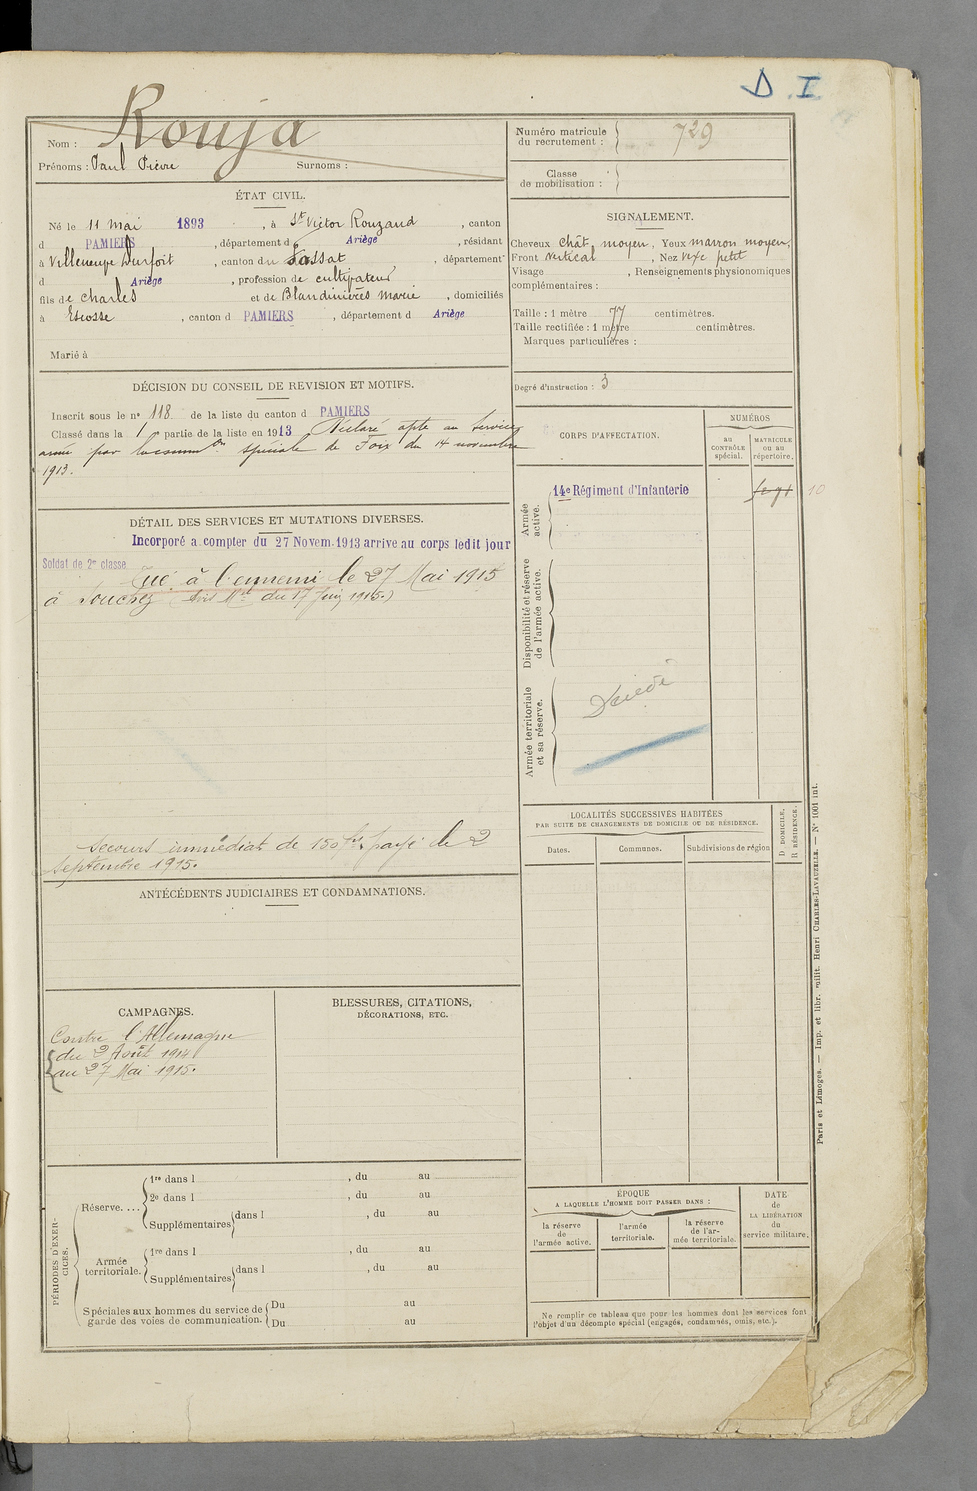 D . I
Rouja
Nom :
Prénoms : Paul Pierre Surnoms :
Numéro matricule du recrutement : 729
Classe de mobilisation :
ÉTAT CIVIL.
Né le 11 mai 1893, à St Victor Rouzaud, canton
d PAMIERS, département d Ariège, résidant
à Villeneuve Durfort, canton du Fossat, département
d Ariège, profession de cultivateur
fils de Charles et de Blandinières Marie, domiciliés
à Escosse, canton d PAMIERS, département d Ariège
Marié à
SIGNALEMENT.
Cheveux chât. moyen, Yeux marron moyen,
Front vertical, Nez vexe petit
Visage , Renseignements physionomiques
complémentaires :
Taille : 1 mètre 77 centimètres.
Taille rectifiée : 1 mètre centimètres.
Marques particulières :
Degré d'instruction : 3
DÉCISION DU CONSEIL DE REVISION ET MOTIFS.
Inscrit sous le no 118 de la liste du canton d PAMIERS
Classé dans la 1e partie de la liste en 1913 Déclaré apte au service
armé par la comm on spéciale de Foix du 14 novembre
1913.
DÉTAIL DES SERVICES ET MUTATIONS DIVERSES.
Incorporé a compter du 27 Novem. 1913 arrive au corps ledit jour
Soldat de 2e classe
Tué à l'ennemi le 27 Mai 1915
à Souchez (Avis Mel du 17 Juin 1915.)
Secours immédiat de 150 frs payé le 2
Septembre 1915.
CORPS D'AFFECTATION.
NUMÉROS
AU CONTRÔLE spécial.
MATRICULE ou au répertoire.
Armée active.
14e Régiment d'Infanterie
10
Disponibilité et réserve de l'armée active.
Armée territoriale et sa réserve.
Décédé
LOCALITÉS SUCCESSIVES HABITÉES
PAR SUITE DE CHANGEMENTS DE DOMICILE OU DE RÉSIDENCE.
Dates.
Communes.
Subdivisions de région
D DOMICILE,
R RÉSIDENCE.
ANTÉCÉDENTS JUDICIAIRES ET CONDAMNATIONS.
CAMPAGNES.
Contre l'Allemagne
du 2 Août 1914
au 27 Mai 1915.
BLESSURES, CITATIONS,
DÉCORATIONS, ETC.
PÉRIODES D'EXERCICES.
Réserve....
1re dans l , du au
2e dans l , du au
Supplémentaires dans l , du au
Armée territoriale.
1re dans l , du au
Supplémentaires dans l , du au
Spéciales aux hommes du service de garde des voies de communication.
Du au
Du au
ÉPOQUE
A LAQUELLE L'HOMME DOIT PASSER DANS :
la réserve de l'armée active.
l'armée territoriale.
la réserve de l'armée territoriale.
DATE de LA LIBÉRATION du service militaire.
Ne remplir ce tableau que pour les hommes dont les services font
l'objet d'un décompte spécial (engagés, condamnés, omis, etc.).
Paris et Limoges. — Imp. et libr. milit. Henri CHARLES-LAVAUZELLE. — N° 1001 int.